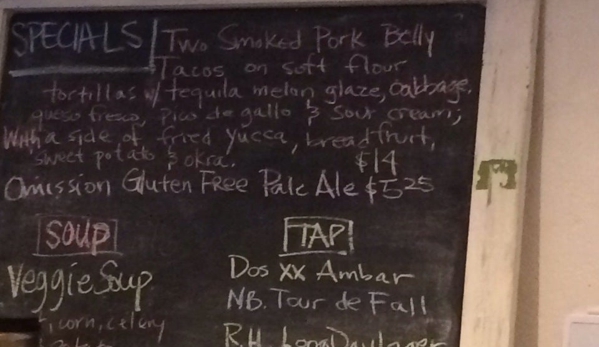 SPECIALS | Two Smoked Pork Belly
Tacos on soft flour
tortillas w/ tequila melon glaze, cabbage,
queso fresco, pico de gallo & sour cream;
With a side of fried yucca, breadfruit,
sweet potato & okra. $14
Omission Gluten Free Pale Ale $5.25
SOUP
Veggie Soup
corn, celery
TAP!
Dos XX Ambar
NB. Tour de Fall
R.H. Long Day Lager